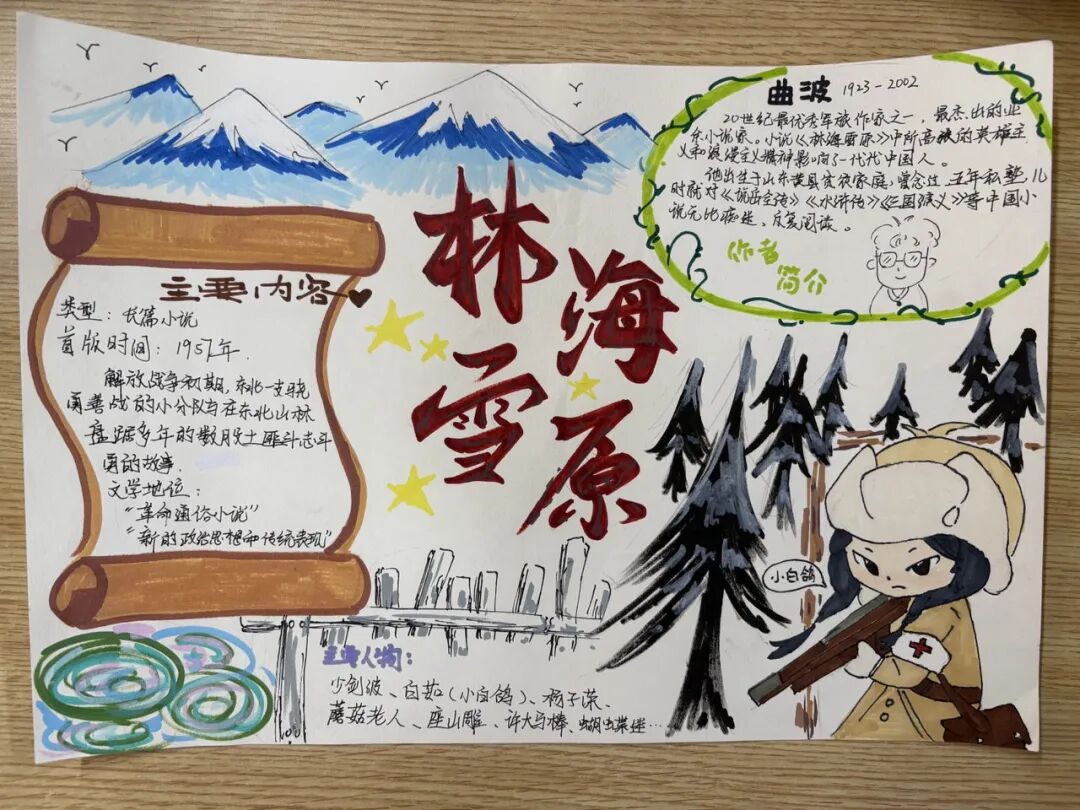 林海
雪原
曲波 1923-2002
20世纪最优秀军旅作家之一，最杰出的业
余小说家。小说《林海雪原》中所高扬的英雄主
义和浪漫主义精神影响了一代代中国人。
他出生于山东黄县贫农家庭，曾念过五年私塾，儿
时就对《说岳全传》《水浒传》《三国演义》等中国小
说无比痴迷，反复阅读。
作者
简介
主要内容
类型：长篇小说
首版时间：1957年.
解放战争初期，东北一支骁
勇善战的小分队与在东北山林
盘踞多年的数股土匪斗志斗
勇的故事.
文学地位：
“革命通俗小说”
“新的政治思想和传统表现”
小白鸽
主要人物：
少剑波、白茹(小白鸽)、杨子荣、
蘑菇老人、座山雕、许大马棒、蝴蝶迷…